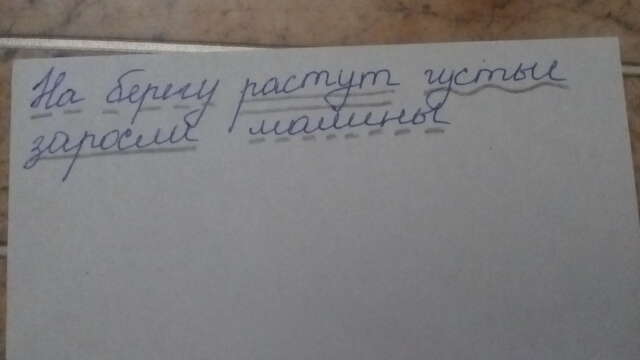 На берегу растут густые
заросли малины